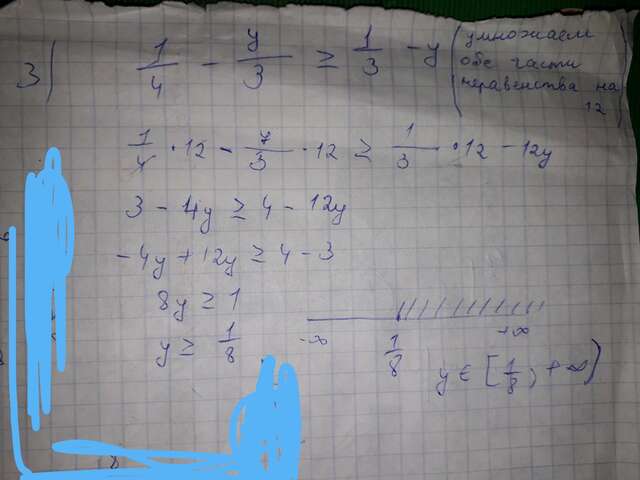 3) 1/4 - y/3 ≥ 1/3 - y (умножаем
обе части
неравенства на
12)
1/4 · 12 - y/3 · 12 ≥ 1/3 · 12 - 12y
3 - 4y ≥ 4 - 12y
-4y + 12y ≥ 4 - 3
8y ≥ 1
y ≥ 1/8
-∞ 1/8 +∞
y ∈ [1/8, +∞)